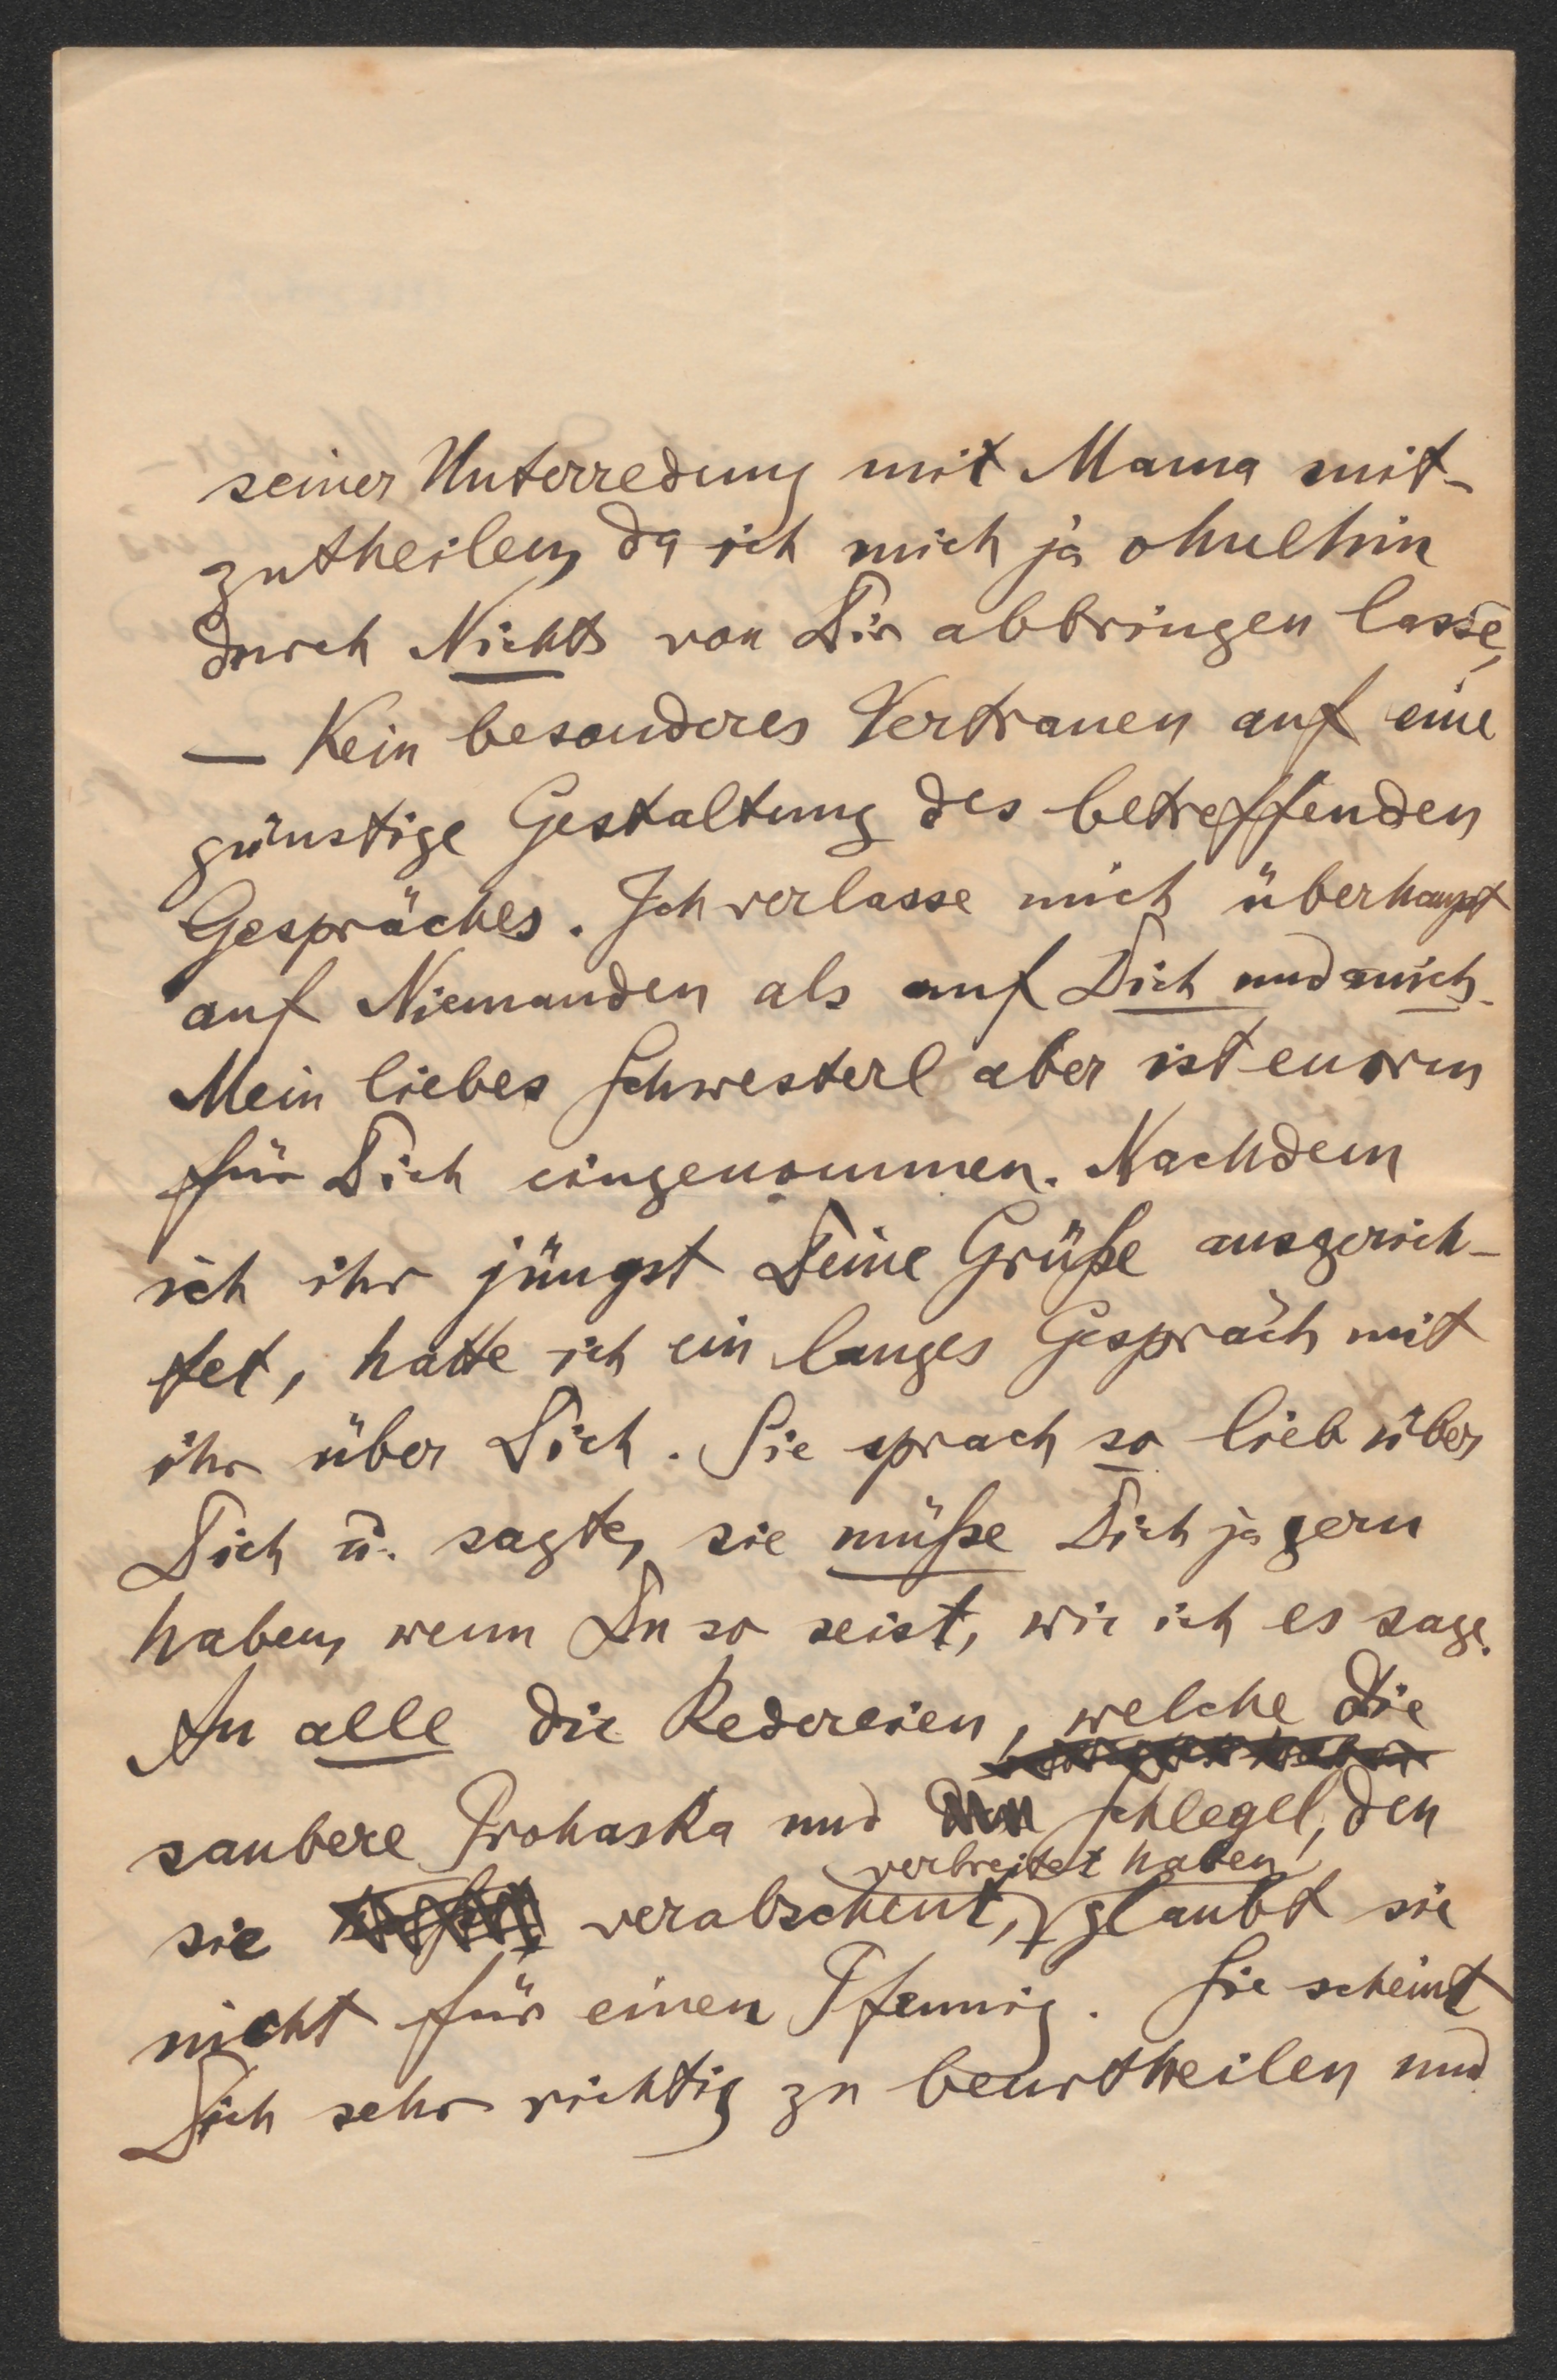 seiner Unterredung mit Mama mit-
zutheilen, da ich mich ja ohnehin
durch Nichts von Dir abbringen lasse,
— Kein besonderes Vertrauen auf eine
günstige Gestaltung des betreffenden
Gespräches. Ich verlasse mich überhaupt
auf Niemanden als auf Dich und mich.
Mein liebes Schwesterl aber ist enorm
für Dich eingenommen. Nachdem
ich ihr jüngst Deine Grüße ausgerich-
tet, hatte ich ein langes Gespräch mit
ihr über Dich. Sie sprach so lieb über
Dich u. sagte, sie müße Dich ja gern
haben, wenn Du so seist, wie ich es sage.
An alle die Redereien, welche die
saubere Prohaska und Schlegel, den
verbreitet haben,
sie verabscheut, glaubt sie
nicht für einen Pfennig. Sie scheint
Dich sehr richtig zu beurtheilen und